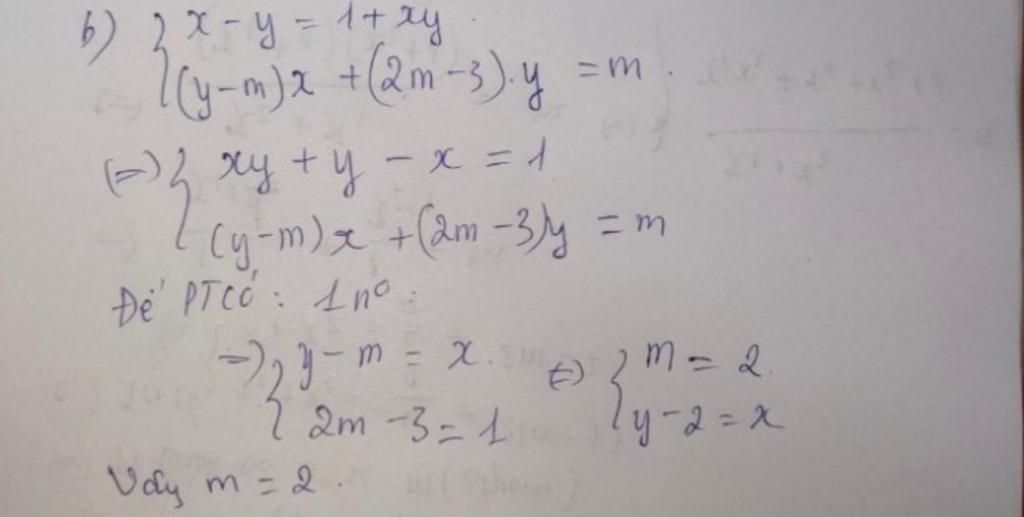 b) { x - y = 1 + xy.
(y-m)x + (2m-3).y = m.
(=) { xy + y - x = 1
(y-m)x + (2m-3)y = m
Để PTCó : 1 nº.
=) { y - m = x. (=) { m = 2.
2m - 3 = 1 y - 2 = x
Vậy m = 2.